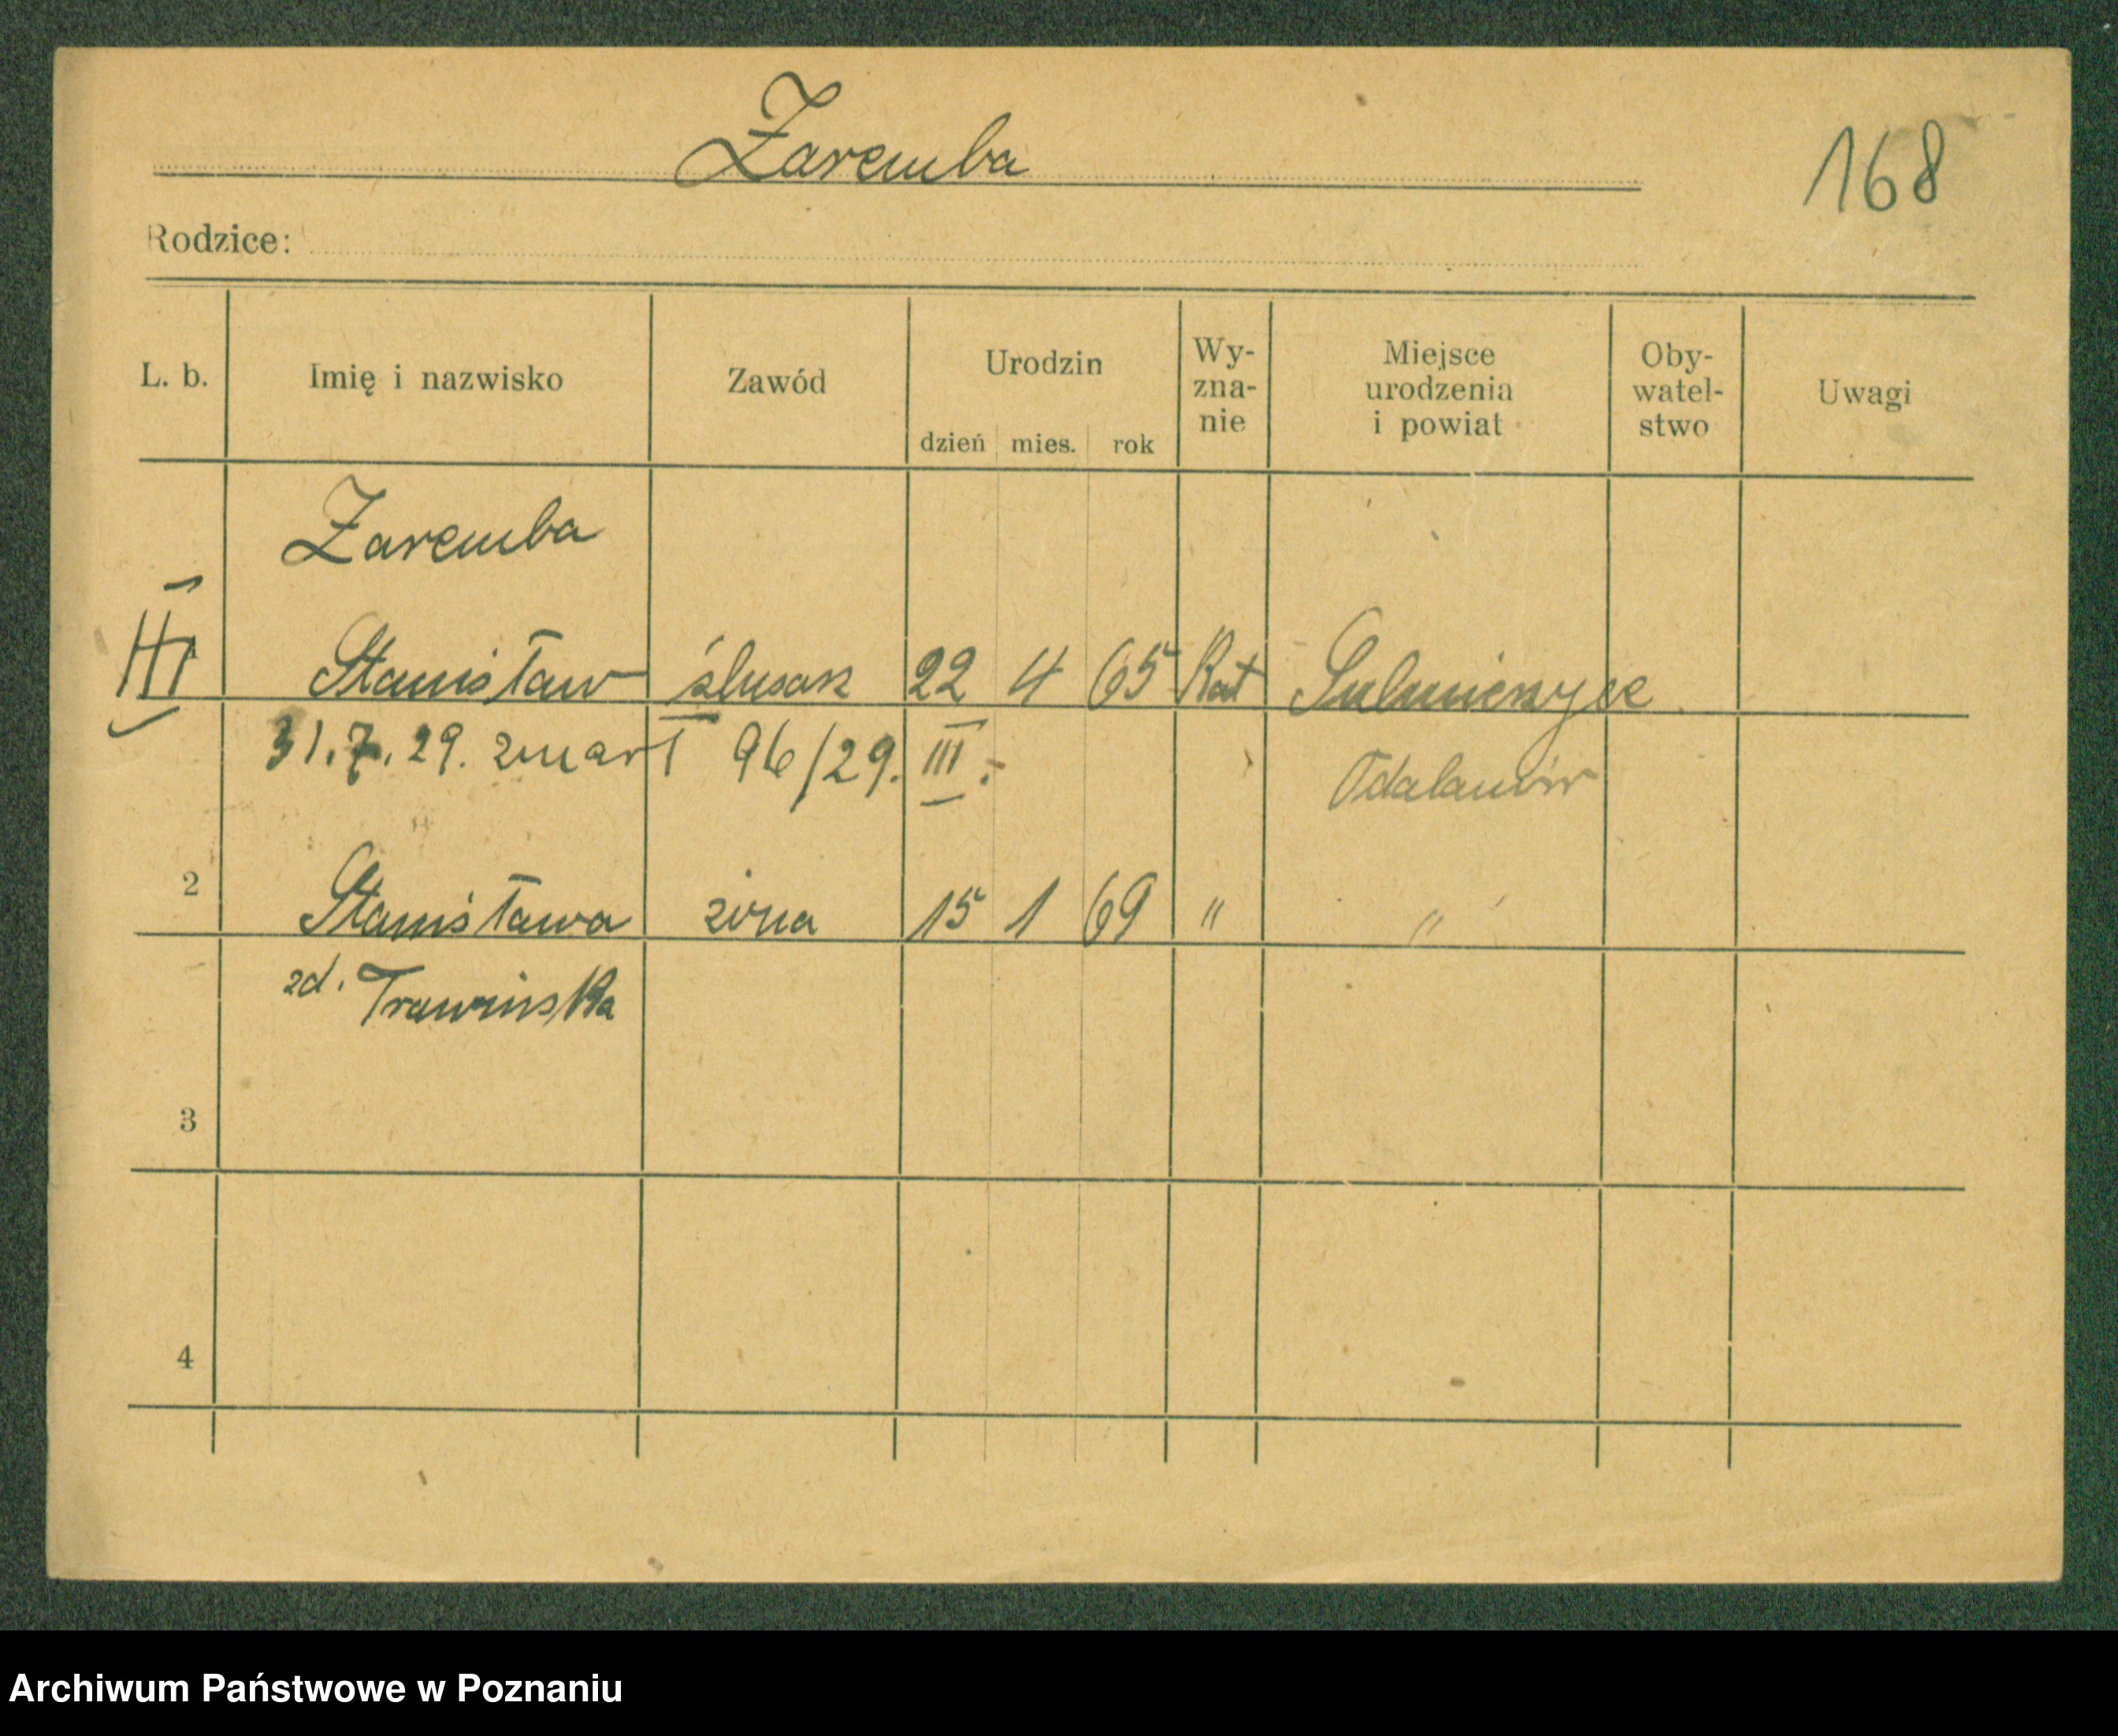 Zaremba
168
Rodzice:
L. b. Imię i nazwisko Zawód Urodzin dzień mies. rok Wy-zna-nie Miejsce urodzenia i powiat Oby-watel-stwo Uwagi
Zaremba
Stanisław ślusarz 22 4 65 Kat Sulmierzyce
31.7.29. zmarł 96/29. III.-
Odalanów
2 Stanisława żona 15 1 69 " "
zd. Trawińska
3
4
Archiwum Państwowe w Poznaniu